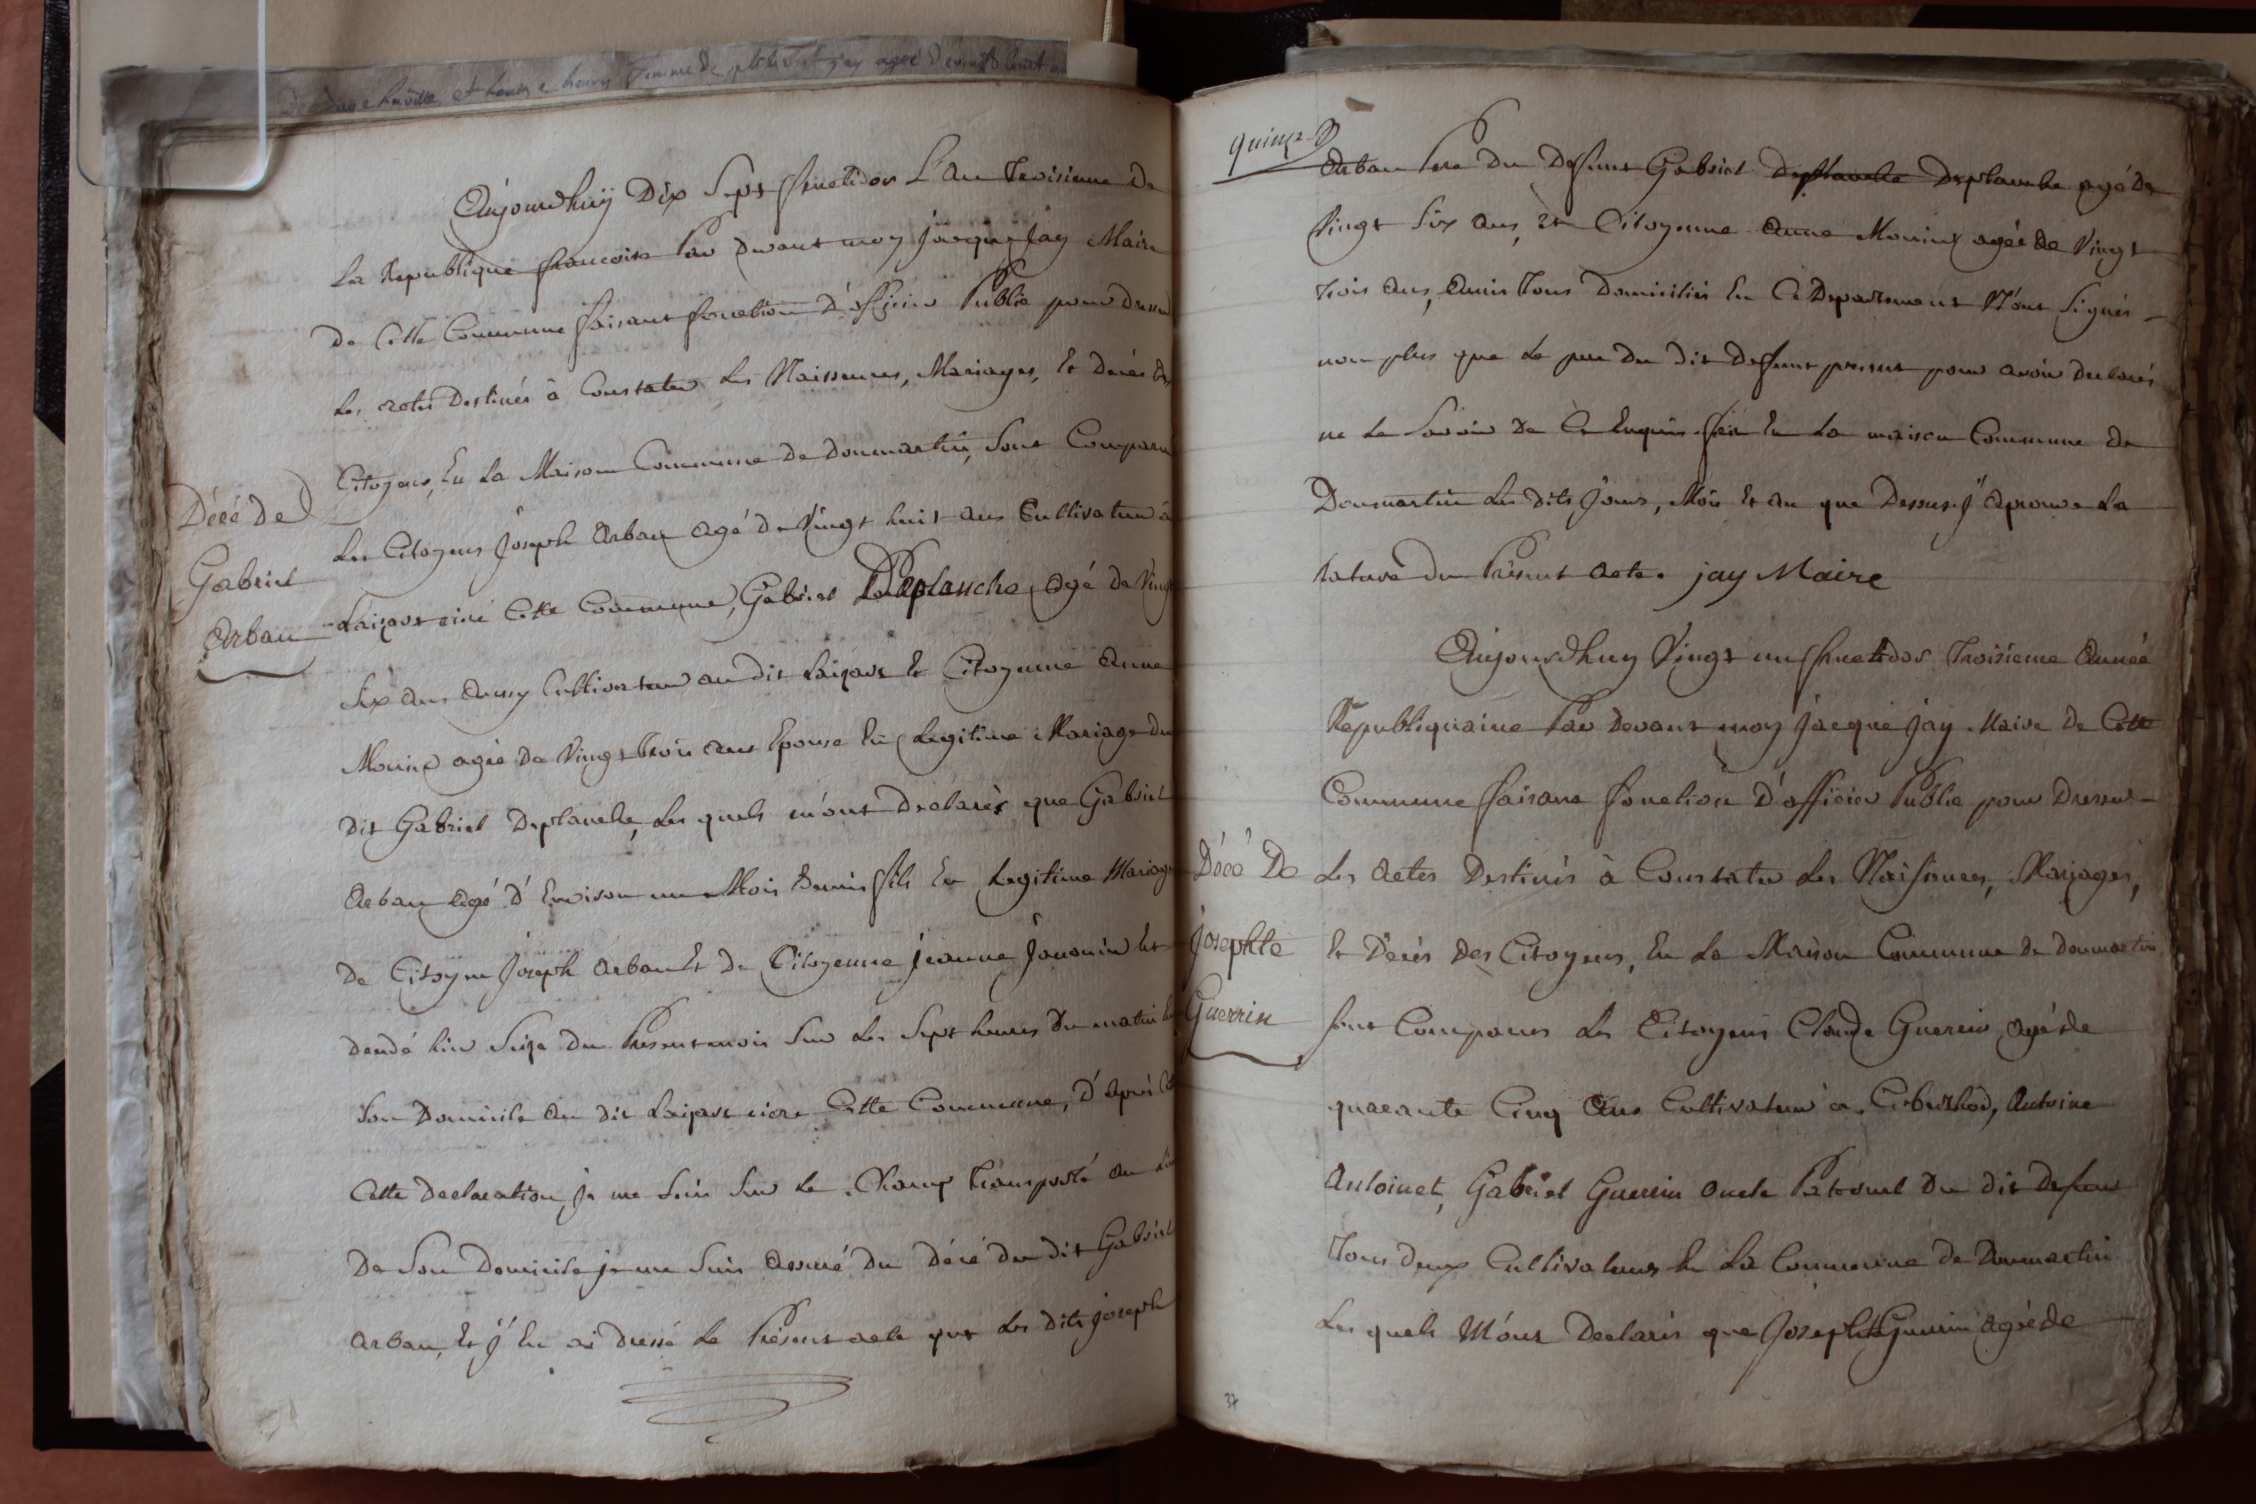 Aujourdhuÿ Dix Sept fructidor L'an Troisieme De
La Republique francoise Par devant moy jacque jay Maire
de Cette Commune faisant fonction d'officier Public pour dresser
Les actes Destinés à Constater Les Naissances, Mariages, et decés des
Citoyens, En La Maison Commune de donmartin, Sont Comparu
Les Citoyens joseph Arban agé de Vingt huit ans Cultivateur à
riere Cette Commune, Gabriel Deplanche agé de Vingt
Six ans aussy Cultivateur au dit et Citoyenne Anne
agée de Vingt trois ans Epouse En Legitime Mariage du
dit Gabriel Deplanche, Les quels m'ont declarés que Gabriel
Arban agé d'Environ un Mois Demis fils En Legitime Mariage
de Citoyen joseph Arban Et de Citoyenne jeanne Est
decedé hier Seize du Present mois Sur Les Sept heures du matin
Son Domicile au dit riere Cette Commune, d'apres
Cette declaration, je me Suis Sur Le Champ transporté au Lieu
De Son Domicile je me Suis Assuré du décé du dit Gabriel
Arban, Et j'En ai dressé Le Présent acte que Les dits joseph
Décé de
Gabriel
Arban
quinze
Arban Pere du Defunt Gabriel Deplanche Deplanche agé de
Vingt Six ans, et Citoyenne Anne agée de Vingt
trois ans, amis tous Domiciliés En Ce Departement N'ont Signés
non plus que Le pere du dit Defunt present pour avoir declarés
ne Le Savoir de Ce Enquis fait En La maison Commune de
Donmartin Les dits jours, Mois Et an que Dessus j'aprouve La
rature du Présent acte. jay Maire
Aujourdhuy Vingt un fructidor Troisieme Année
Republiquaine Par Devant moy jacque jay Maire de Cette
Commune faisant fonction D'officier Public pour Dresser
Les Actes Destinés à Constater Les Naissances, Mariages,
Et Decés Des Citoyens, En La Maison Commune de donmartin
Sont Comparus Les Citoyens Claude Guerrin agé de
quarante Cinq Ans Cultivateur à Antoine
Antoinet, Gabriel Guerrin oncle Paternel Du dit Defunt
Tous deux Cultivateurs En La Commune de Donmartin
Les quels M'ont Declarés que josephte Guerrin agée de
Décé De
josephte
Guerrin
37